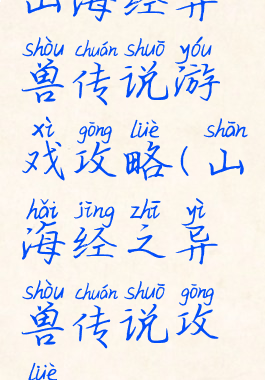 山海经异
shòu chuán shuō yóu
兽传说游
xì gōng lüè shān
戏攻略(山
hǎi jīng zhī yì
海经之异
shòu chuán shuō gōng
兽传说攻
lüè